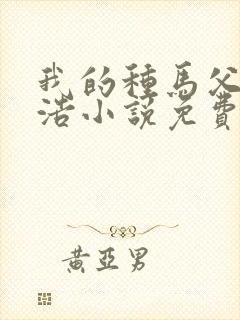 我的種馬父
浩小說免費
黃亞男